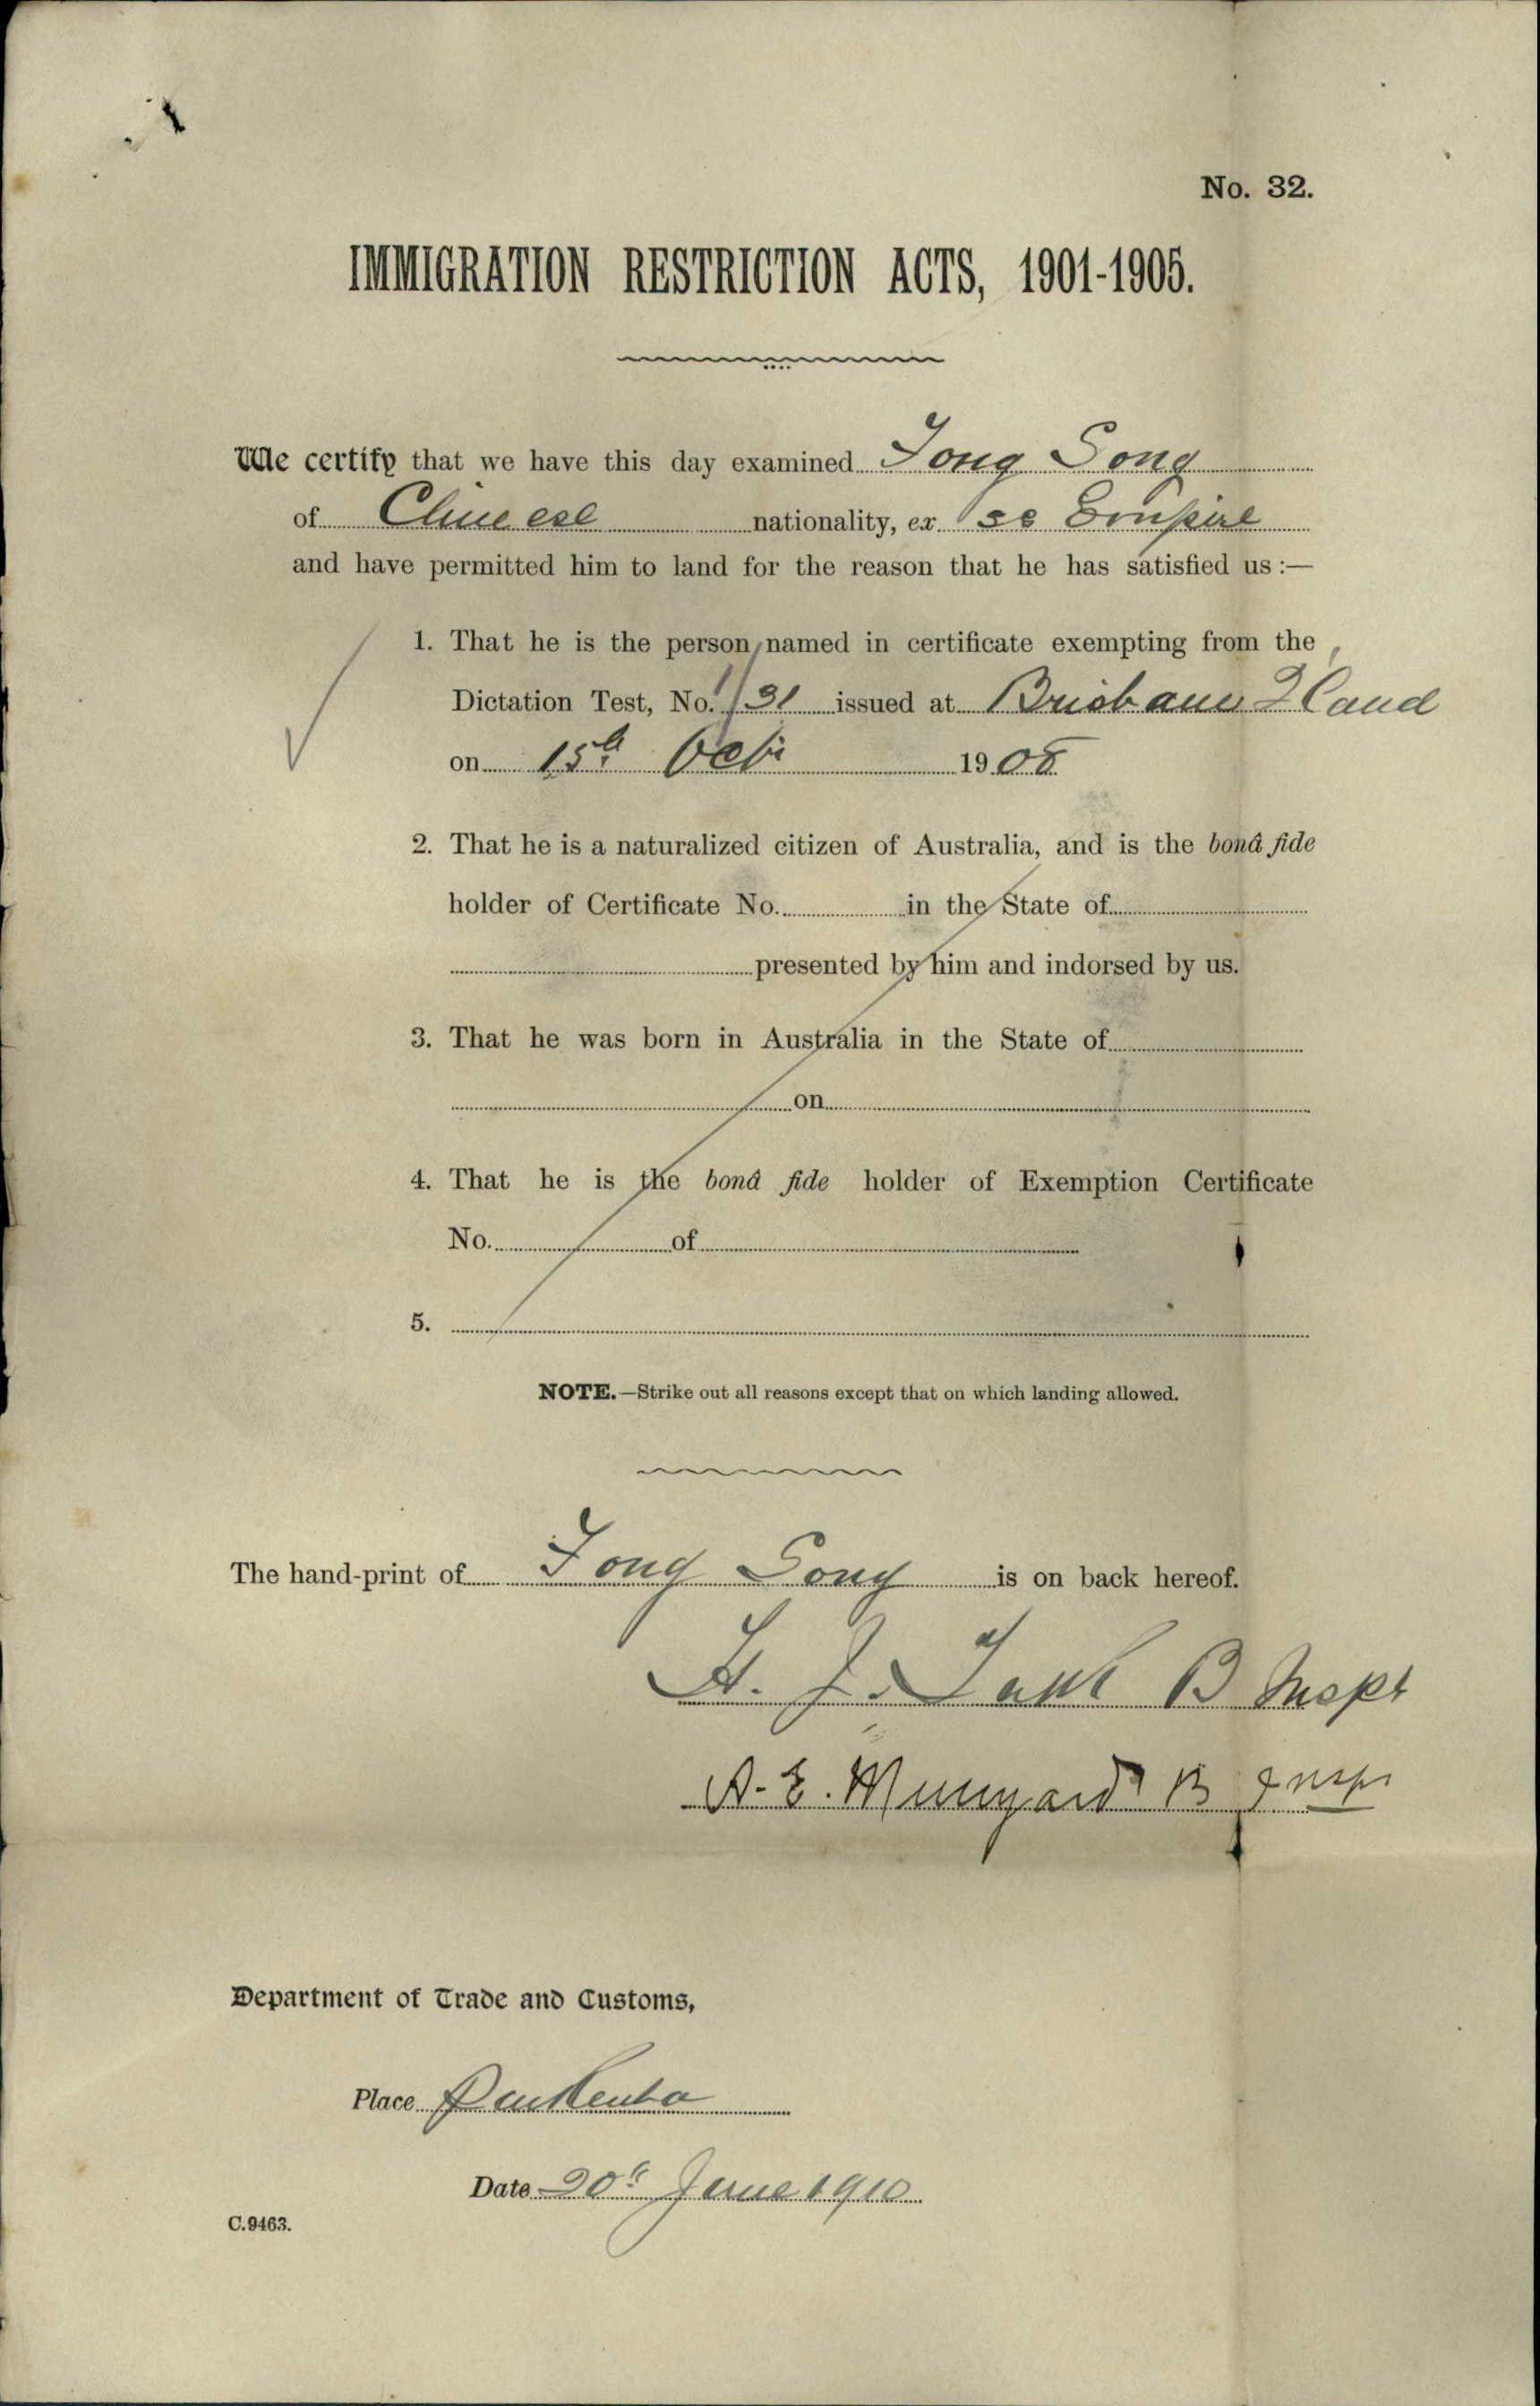 No. 32.
IMMIGRATION RESTRICTION ACTS, 1901-1905.
We certify that we have this day examined Tong Song
of Chinese nationality, ex ss Empire
and have permitted him to land for the reason that he has satisfied us:—
1. That he is the person named in certificate exempting from the
Dictation Test, No. 1/31 issued at Brisbane Qland
on 15th Octr 1908
2. That he is a naturalized citizen of Australia, and is the bonâ fide
holder of Certificate No. in the State of
presented by him and indorsed by us.
3. That he was born in Australia in the State of
on
4. That he is the bonâ fide holder of Exemption Certificate
No. of
5.
NOTE.—Strike out all reasons except that on which landing allowed.
The hand-print of Tong Song is on back hereof.
H. J. B Inspt
A. E. Munyard B Inspr
Department of Trade and Customs,
Place Pinkenba
Date 20th June 1910
C.9463.